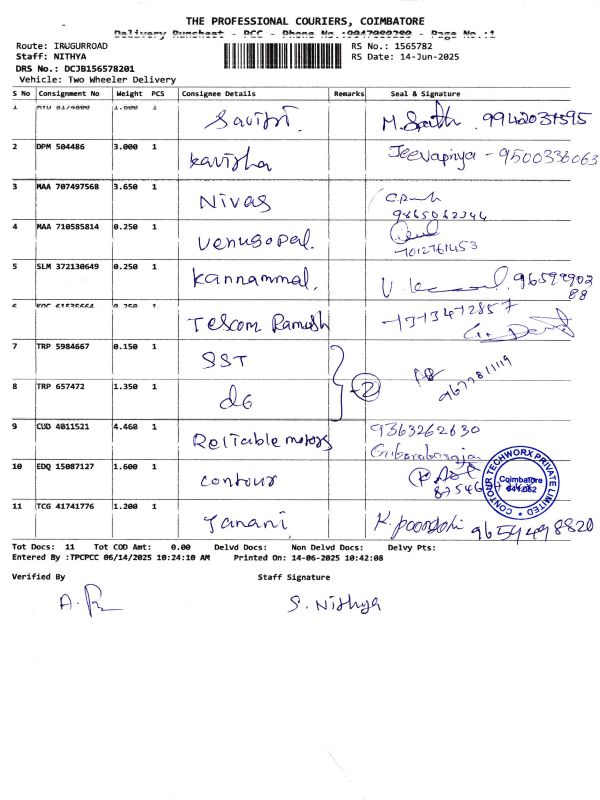 THE PROFESSIONAL COURIERS, COIMBATORE
Delivery Runsheet - PCC - Phone No.:9047080280 - Page No.:1
Route: IRUGURROAD
RS No.: 1565782
Staff: NITHYA
RS Date: 14-Jun-2025
DRS No.: DCJB156578201
Vehicle: Two Wheeler Delivery
S No Consignment No Weight PCS Consignee Details Remarks Seal & Signature
1 1.000 1 Savitri. 9942037595
2 DPM 504486 3.000 1 kavisha Jeevapriya - 9500336063
3 MAA 707497568 3.650 1 Nivas
4 MAA 710585814 0.250 1 Venugopal.
5 SLM 372130649 0.250 1 kannammal.
6 1 Ramesh 7373472857
7 TRP 5984667 0.150 1 SST
2
8 TRP 657472 1.350 1 dG
9 CUD 4011521 4.460 1 Reliable motors 9363262630
10 EDQ 15087127 1.600 1 contour
CONTOUR TECHWORX PRIVATE LIMITED
Coimbatore
11 TCG 41741776 1.200 1 Janani 9659498820
Tot Docs: 11 Tot COD Amt: 0.00 Delvd Docs: Non Delvd Docs: Delvy Pts:
Entered By :TPCPCC 06/14/2025 10:24:10 AM Printed On: 14-06-2025 10:42:08
Verified By Staff Signature
S. Nithya